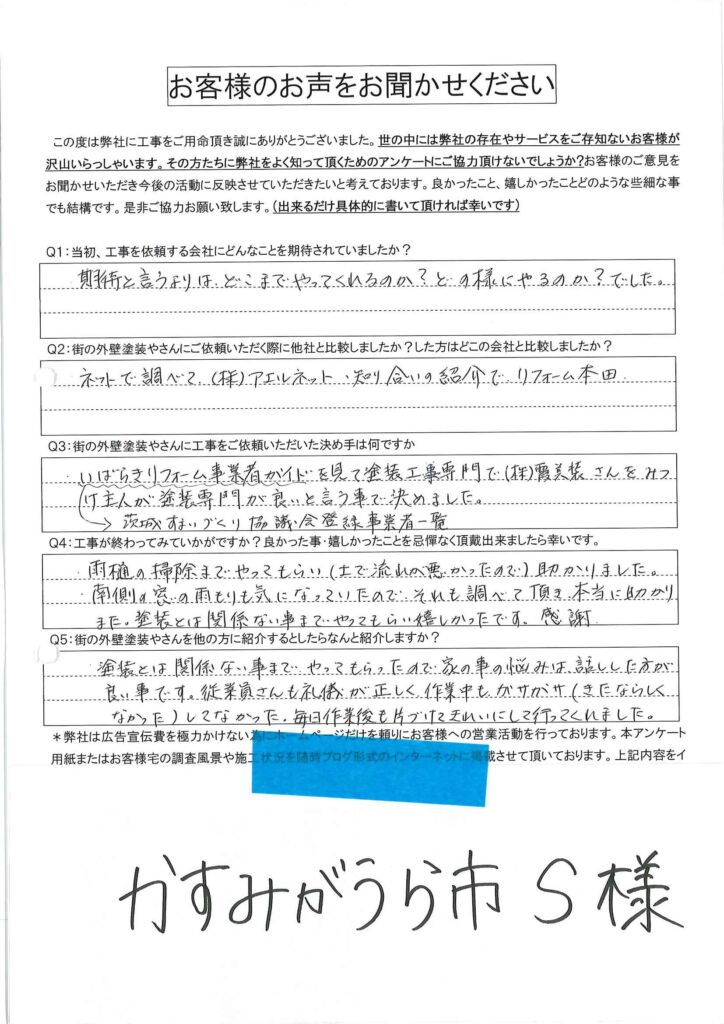 お客様のお声をお聞かせください
この度は弊社に工事をご用命頂き誠にありがとうございました。世の中には弊社の存在やサービスをご存知ないお客様が
沢山いらっしゃいます。その方たちに弊社をよく知って頂くためのアンケートにご協力頂けないでしょうか?お客様のご意見を
お聞かせいただき今後の活動に反映させていただきたいと考えております。良かったこと、嬉しかったことどのような些細な事
でも結構です。是非ご協力お願い致します。(出来るだけ具体的に書いて頂ければ幸いです)
Q1:当初、工事を依頼する会社にどんなことを期待されていましたか?
期待と言うよりは、どこまでやってくれるのか?どの様にやるのか?でした。
Q2:街の外壁塗装やさんにご依頼いただく際に他社と比較しましたか?した方はどこの会社と比較しましたか?
ネットで調べて(株)アエルネット、知り合いの紹介でリフォーム本田
Q3:街の外壁塗装やさんに工事をご依頼いただいた決め手は何ですか
いばらきリフォーム事業者ガイドを見て塗装工事専門で(株)霞美装さんをみつ
け主人が塗装専門が良いと言う事で決めました。
→茨城すまいづくり協議会登録事業者一覧
Q4:工事が終わってみていかがですか?良かった事・嬉しかったことを忌憚なく頂戴出来ましたら幸いです。
雨樋の掃除までやってもらい(土で流れが悪かったので)助かりました。
南側の窓の雨もりも気になっていたので、それも調べて頂き、本当に助かり
また、塗装とは関係ない事までやってもらい嬉しかったです。感謝
Q5:街の外壁塗装やさんを他の方に紹介するとしたらなんと紹介しますか?
塗装とは関係ない事まで、やってもらったので家の事の悩みは、話しした方が
良い事です。従業員さんも礼儀が正しく、作業中もガサガサ(きたならしく
なかった)してなかった。毎日作業後も片づけてきれいにして行ってくれました。
*弊社は広告宣伝費を極力かけない為にホームページだけを頼りにお客様への営業活動を行っております。本アンケート
用紙またはお客様宅の調査風景や施工状況を随時ブログ形式のインターネットに掲載させて頂いております。上記内容をイ
かすみがうら市 S様